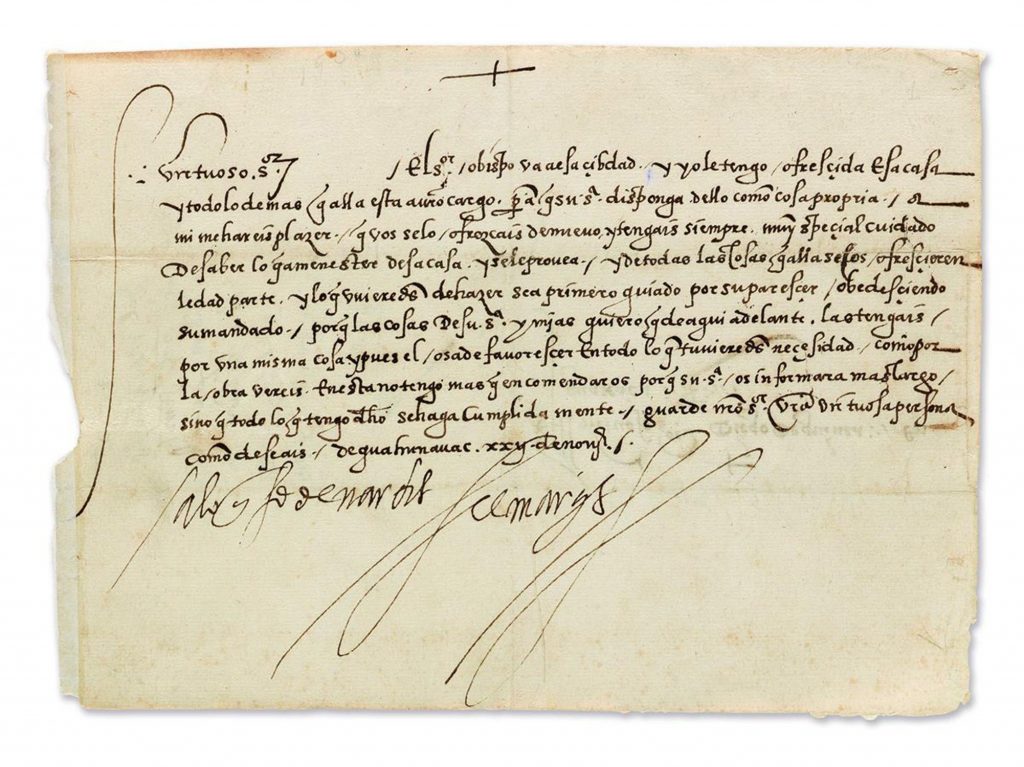 virtuoso .sor
/ El sor / obispo va a esa çibdad . y yo le tengo / ofresçida Esa casa
y todo lo demas q alla esta a vro cargo . pa q su .s.a disponga dello como cosa propria . / a
mi me hareis plazer . / q vos se lo / ofrezcais de nuevo . y tengais siempre . muy special cuidado
De saber lo q a menester de esa casa . y se le provea . / y de todas las cosas q alla se les / ofresçieren
le dad parte . y lo q vvieredes de hazer sea primero guiado por su paresçer / obedesçiendo
su mandado . / porq las cosas De su .s.a y mias quiero q de aqui adelante . las tengais /
por vna misma cosa y pues el / os a de favoresçer En todo lo q tuvieredes neçesidad . como por
la / obra vereis . En esta no tengo mas q encomendaros porq su .s.a / os informara mas largo /
sino q todo lo q tengo dho se haga cumplidamente . / guarde nro sor . vra virtuosa persona
como deseais . / de guahunavac . xxij de novi.e / .
el marq̄s